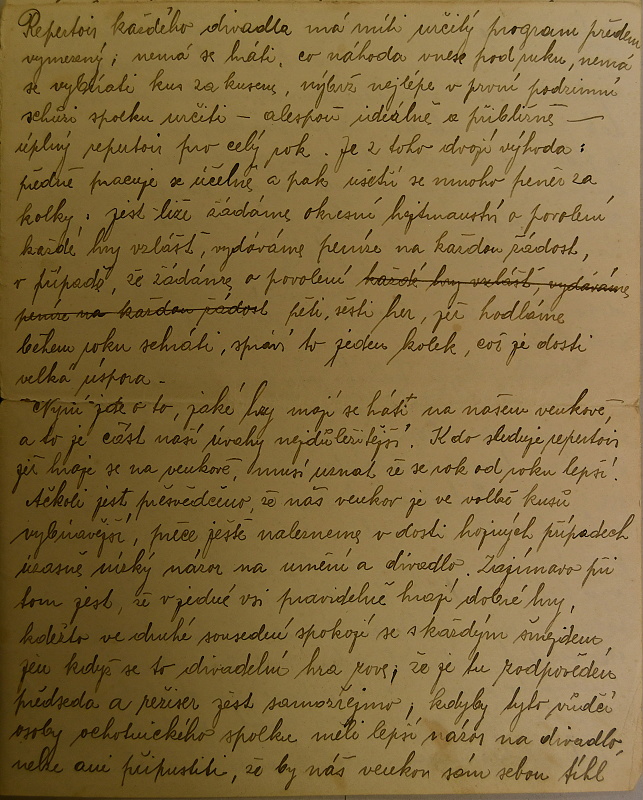 Repertoir každého divadla má míti určitý program předem
vymezený; nemá se hráti, co náhoda vnese pod ruku, nemá
se vybírati kus za kusem, nýbrž nejlépe v první podzimní
schůzi spolku určiti – alespoň ideálně a přibližně –
úplný repertoir pro celý rok. Je z toho dvojí výhoda:
předně pracuje se účelně a pak ušetří se mnoho peněz za
kolky. jest-liže žádáme okresní hejtmanství o povolení
každé hry vzlášť, vydáváme peníze na každou žádost,
v případě, že žádáme o povolení každé hry vzlášť, vydáváme
peníze na každou žádost pěti, šesti her, jež hodláme
během roku sehráti, spraví to jeden kolek, což je dosti
velká úspora.
Nyní jde o to, jaké hry mají se hráti na našem venkově,
a to je část naší úvahy nejdůležitější. Kdo sleduje repertoir
jež hraje se na venkově, musí uznat že se rok od roku lepší.
Ačkoli jest přesvědčeno, že náš venkov je ve volbě kusů
vybíravější, přece ještě nalezneme v dosti hojných případech
úžasně nízký názor na umění a divadlo. Zajímavo při
tom jest, že v jedné vsi pravidelně hrají dobré hry,
kdežto ve druhé sousední spokojí se s každým šmejdem
jen když se to divadelní hra zove; že je tu zodpověden
předseda a režiser jest samozřejmo; kdyby tyto vůdčí
osoby ochotnického spolku měli lepší názor na divadlo,
nelze ani připustiti, že by náš venkov sám sebou tíhl